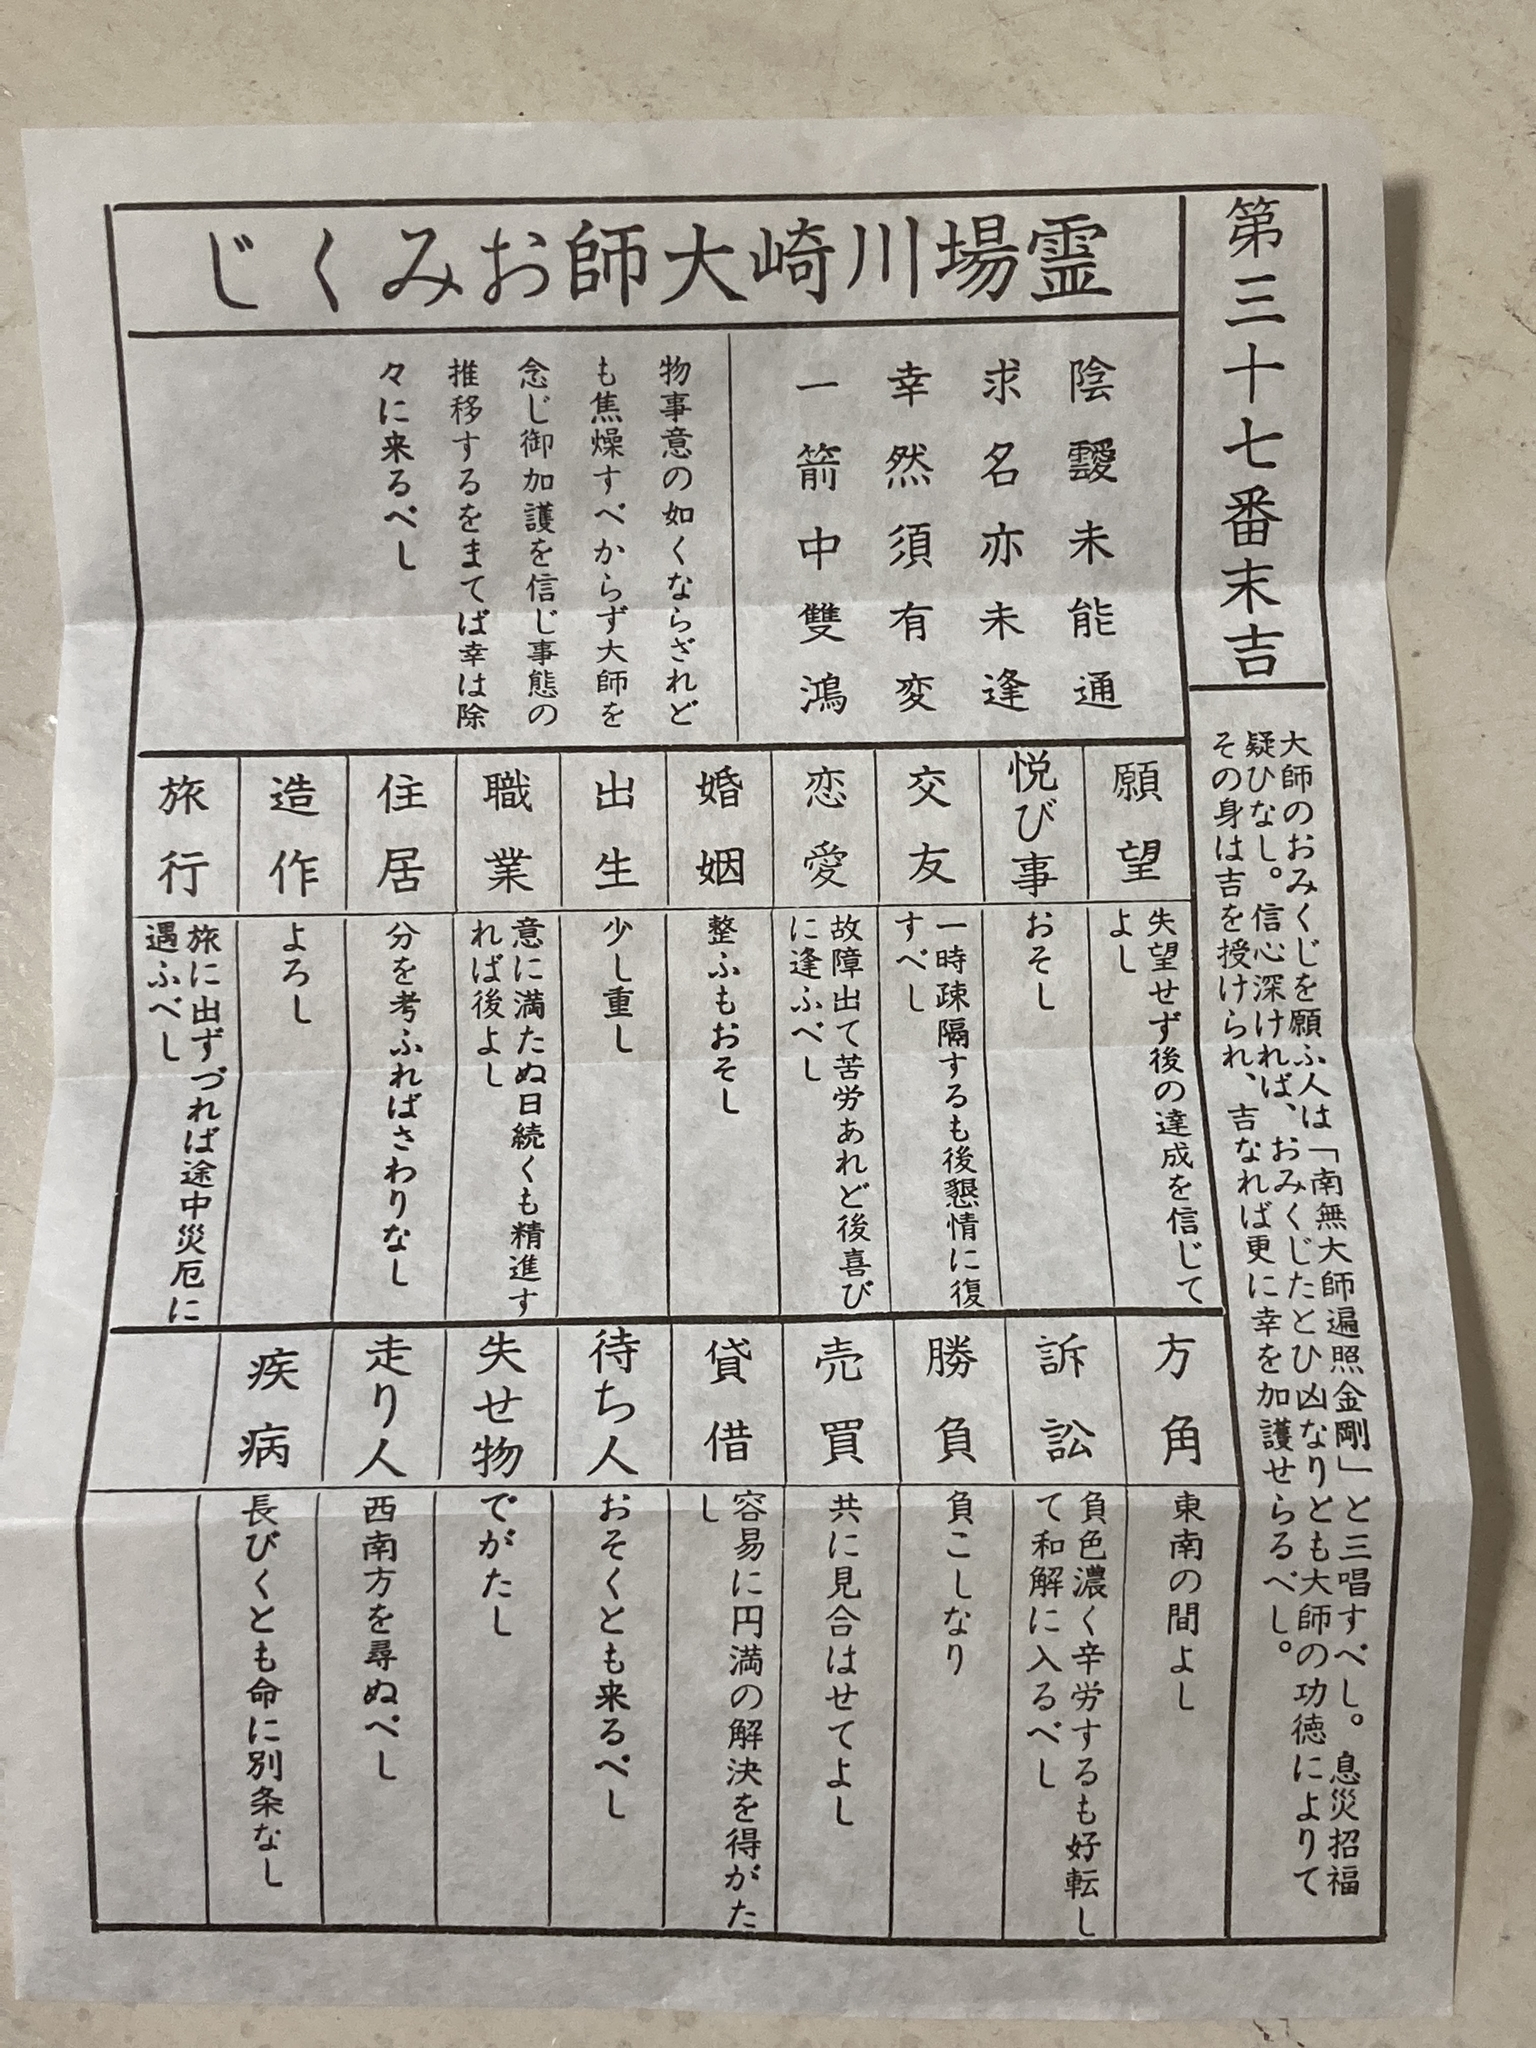 第三十七番末吉
大師のおみくじを願ふ人は「南無大師遍照金剛」と三唱すべし。息災招福
疑ひなし。信心深ければ、おみくじたとひ凶なりとも大師の功徳によりて
その身は吉を授けられ、吉なれば更に幸を加護せらるべし。
霊場川崎大師おみくじ
陰靉未能通
求名亦未逢
幸然須有変
一箭中雙鴻
物事意の如くならざれど
も焦燥すべからず大師を
念じ御加護を信じ事態の
推移するをまてば幸は除
々に来るべし
願望
失望せず後の達成を信じて
よし
悦び事
おそし
交友
一時疎隔するも後懇情に復
すべし
恋愛
故障出て苦労あれど後喜び
に逢ふべし
婚姻
整ふもおそし
出生
少し重し
職業
意に満たぬ日続くも精進す
れば後よし
住居
分を考ふればさわりなし
造作
よろし
旅行
旅に出ずづれば途中災厄に
遇ふべし
方角
東南の間よし
訴訟
負色濃く辛労するも好転し
て和解に入るべし
勝負
負こしなり
売買
共に見合はせてよし
貸借
容易に円満の解決を得がた
し
待ち人
おそくとも来るべし
失せ物
でがたし
走り人
西南方を尋ぬべし
疾病
長びくとも命に別条なし